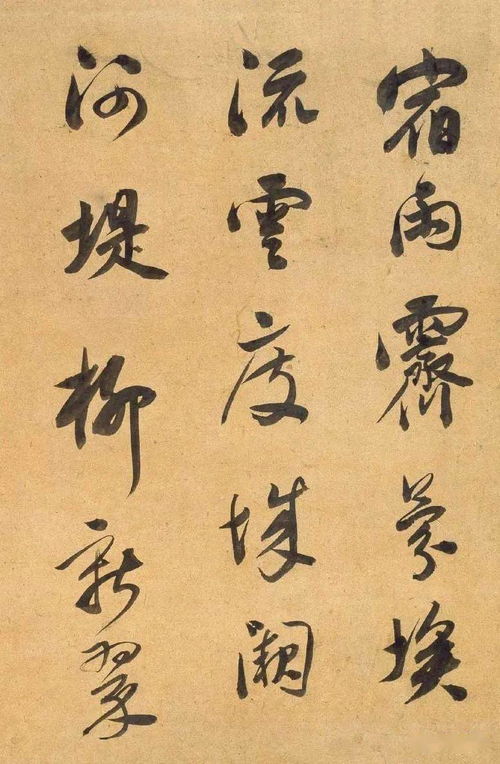 宿雨霽氛埃
流雲度城闕
河堤柳新翠